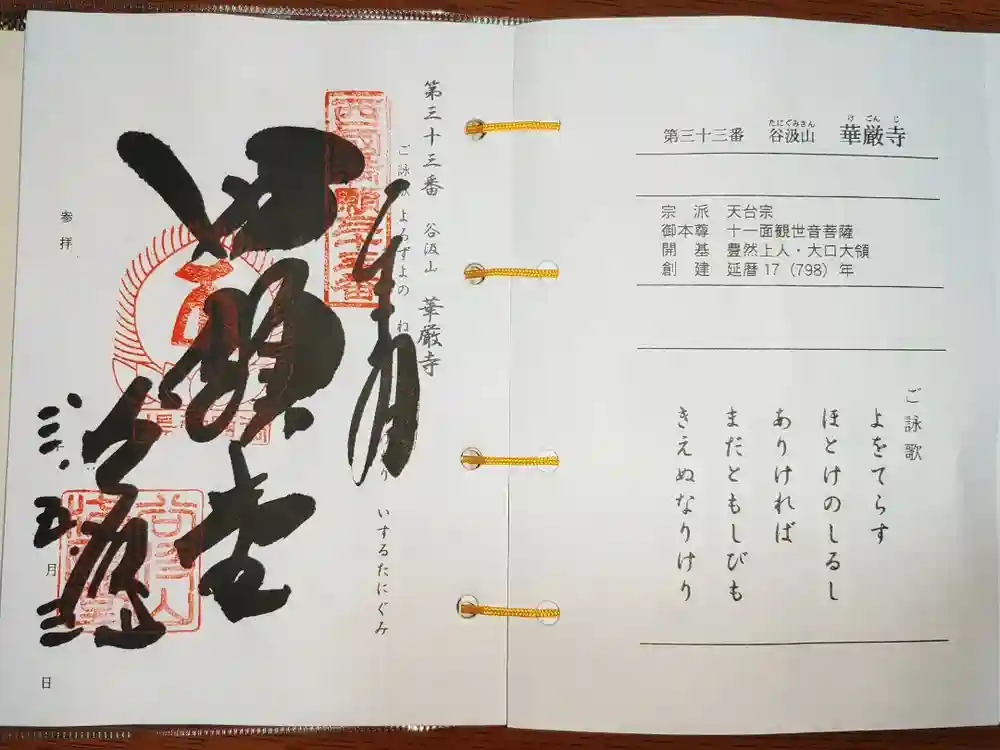 第三十三番 谷汲山 華厳寺
たにぐみさん けごんじ
宗派 天台宗
御本尊 十一面観世音菩薩
開基 豊然上人・大口大領
創建 延暦17（798）年
ご詠歌
よをてらす
ほとけのしるし
ありければ
まだともしびも
きえぬなりけり
第三十三番 谷汲山 華厳寺
ご詠歌 よろずよの ね り いするたにぐみ
奉拝
満願堂
谷汲山
三.五.三
参拝
月
日